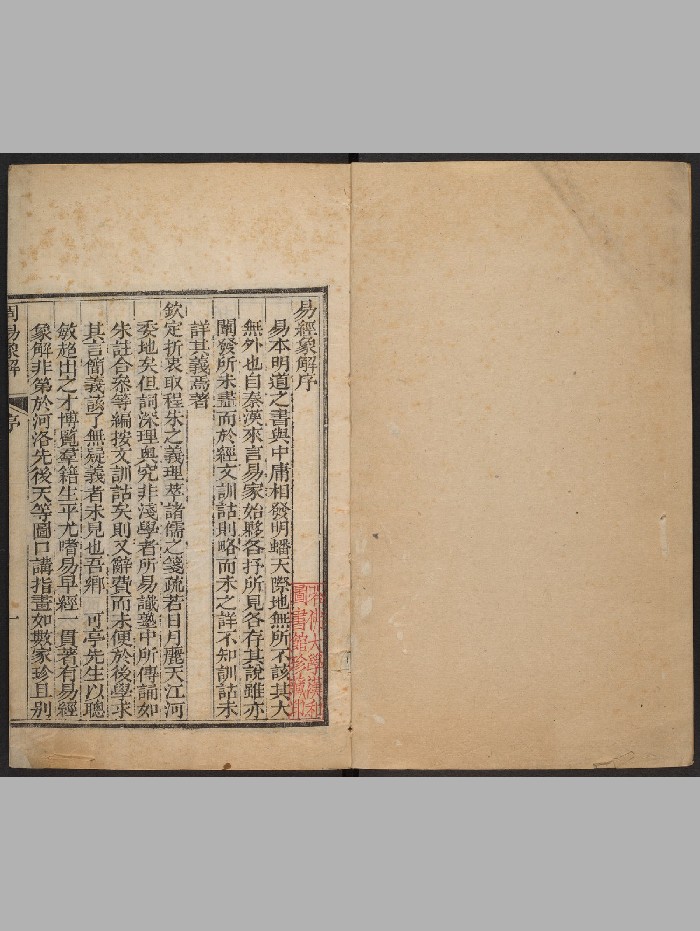 易經象解序
易本明道之書與中庸相發明蟠天際地無所不該其大
無外也自秦漢來言易家始夥各抒所見各存其說雖亦
闡發所未盡而於經文訓詁則略而未之詳不知訓詁未
詳其義焉著
欽定折衷取程朱之義理萃諸儒之箋疏若日月麗天江河
委地矣但詞深理奧究非淺學者所易識塾中所傳誦如
朱註合參等編按文訓詁矣則又辭費而未便於後學求
其言簡義該了無疑義者未見也吾鄉 可亭先生以聰
敏超出之才博覽羣籍生平尤嗜易早經一貫著有易經
象解非第於河洛先後天等圖口講指畫如數家珍且別
周易象解
序
一
哈佛大學漢和
圖書館珍藏印